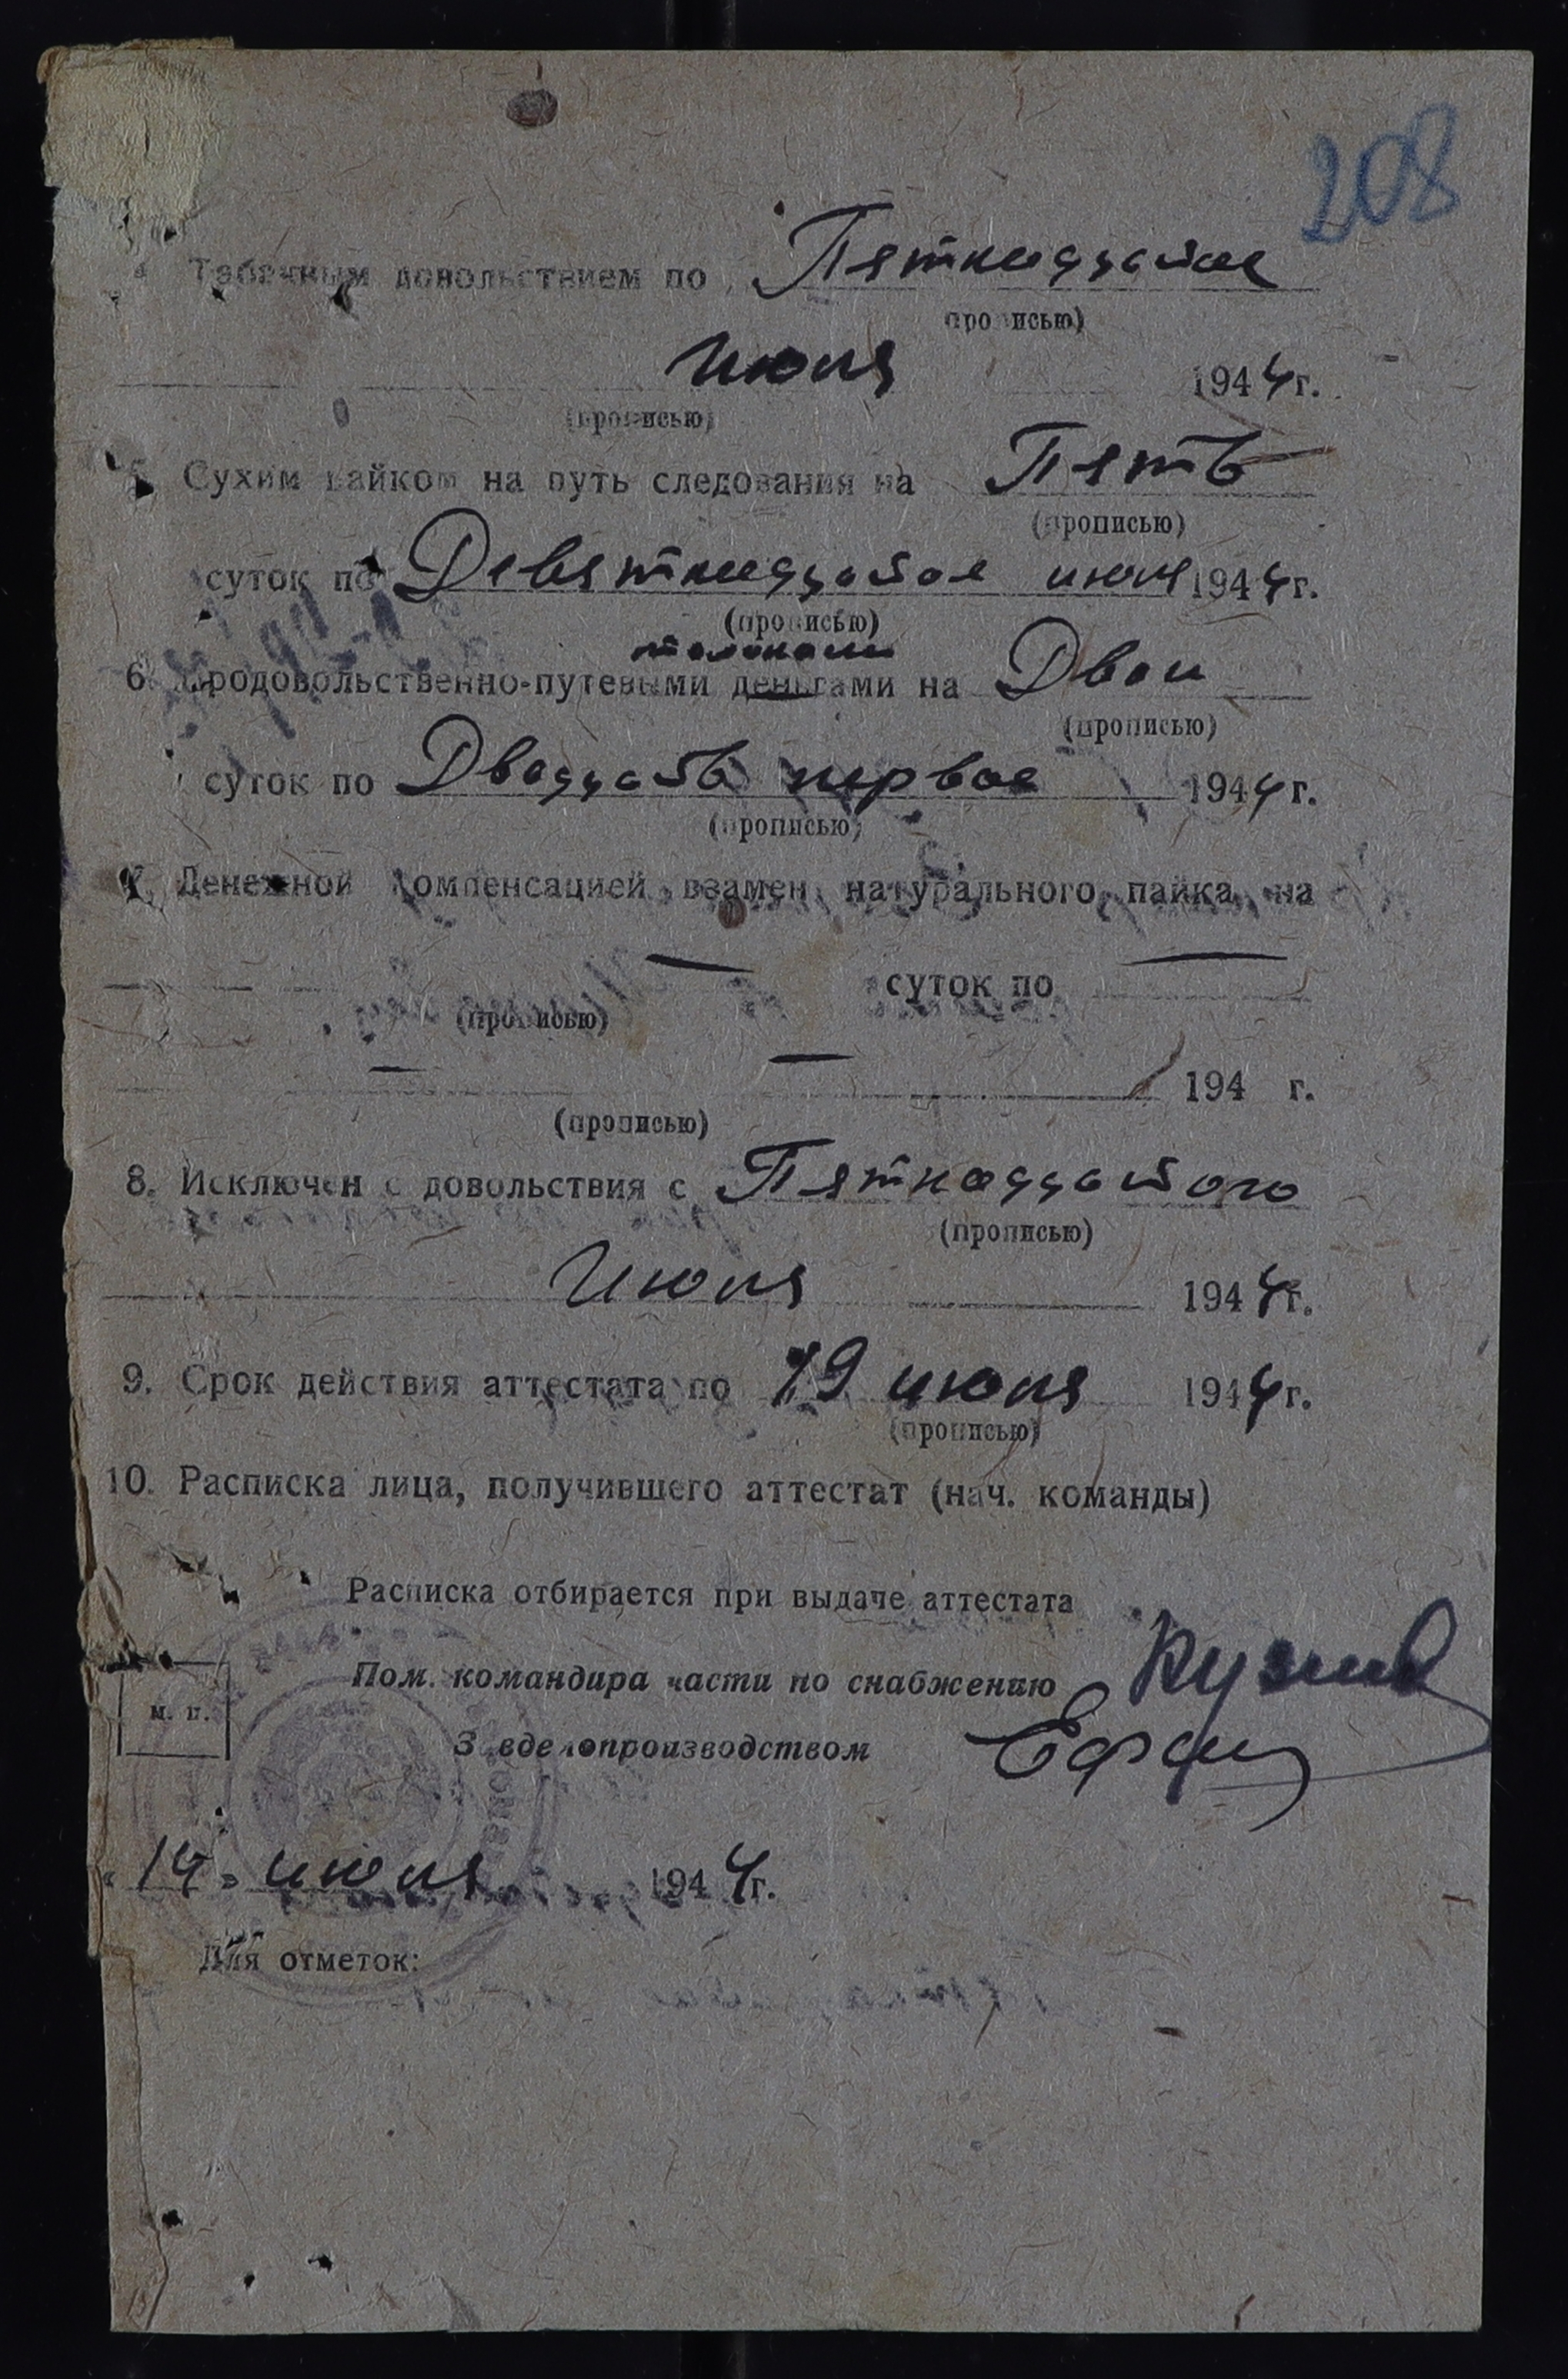 208
4 Табачным довольствием по Пятнадцатое
(прописью)
июля 1944 г.
(прописью)
5 Сухим пайком на путь следования на Пять
(прописью)
суток по Девятнадцатое июля 1944 г.
(прописью)
талонами
6. Продовольственно-путевыми деньгами на Двои
(прописью)
суток по Двадцать первое 1944 г.
(прописью)
7. Денежной компенсацией взамен натурального пайка на
— суток по —
(прописью)
— — 194 г.
(прописью)
8. Исключен с довольствия с Пятнадцатого
(прописью)
Июля 1944 г.
9. Срок действия аттестата по 19 июля 1944 г.
(прописью)
10. Расписка лица, получившего аттестат (нач. команды)
Расписка отбирается при выдаче аттестата
Пом. командира части по снабжению
м. п.
Завделопроизводством
"14" июля 1944 г.
Для отметок: